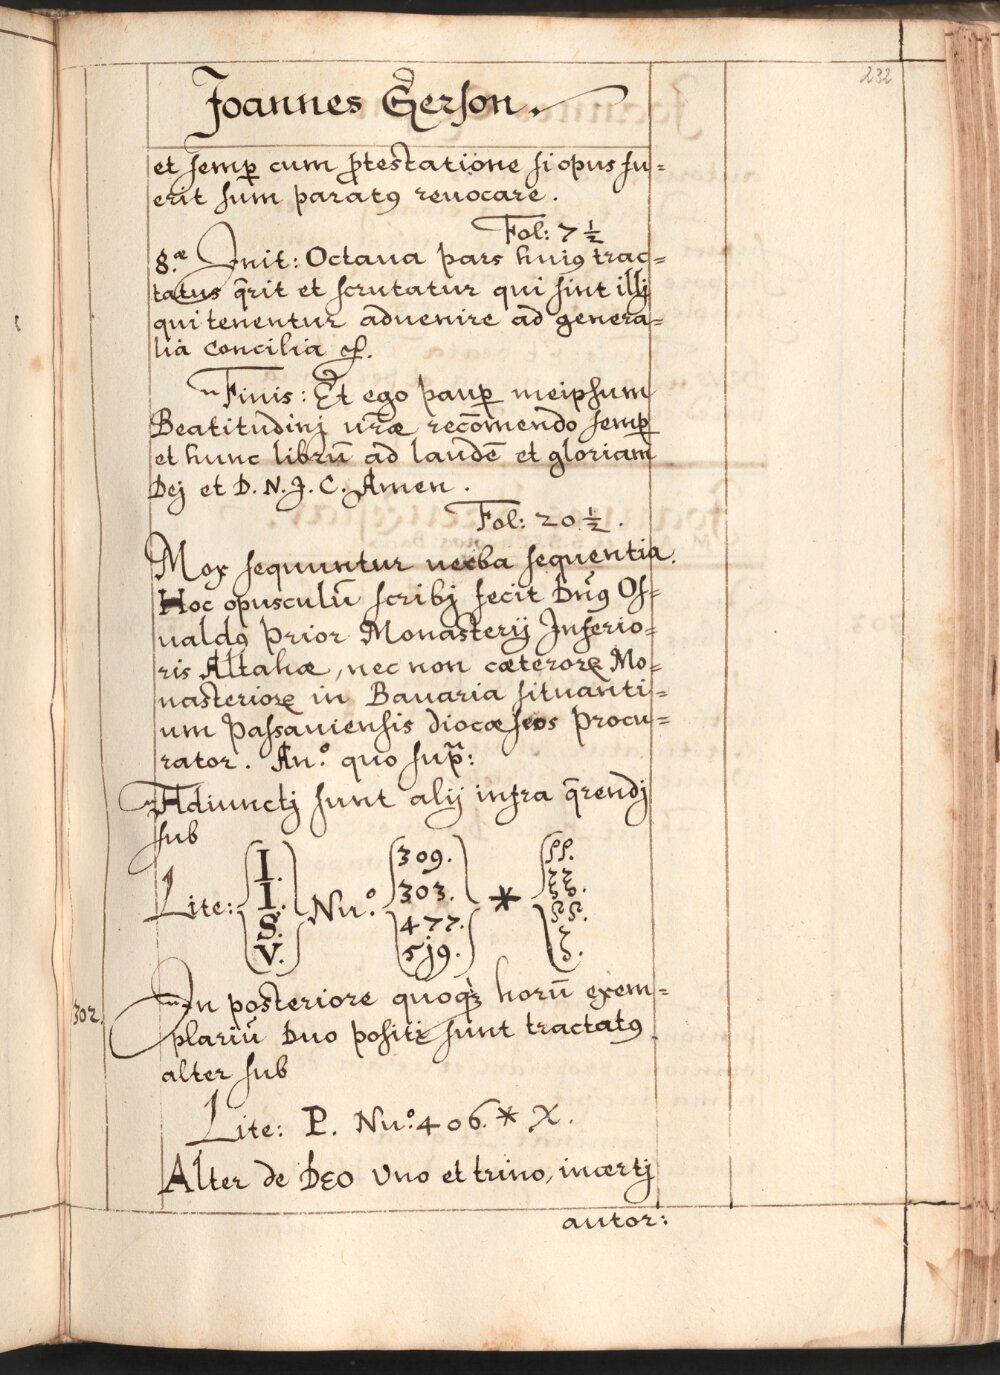 232
Joannes Gerson.
et semp cum ptestatione si opus fu=
erit sum paratꝰ reuocare.
Fol: 7 ½
8.æ Init: Octaua pars huiꝰ trac=
tatus q̄rit et scrutatur qui sint illj
qui tenentur aduenire ad genera=
lia concilia &c.
Finis: Et ego paup meipsum
Beatitudinj vr̄æ recōmendo semp
et hunc librū ad laudē et gloriam
Dej et D. N. J. C. Amen.
Fol: 20 ½.
Mox sequuntur uerba sequentia.
Hoc opusculū scribj fecit Dn̄ꝰ Os=
ualdꝰ Prior Monasterij Inferio=
ris Altahæ, nec non cæterorꝝ Mo=
nasteriorꝝ in Bauaria situanti=
um Passauiensis diocæseos Procu=
rator. An.º quo sup̄:
Adiunctj sunt alij infra q̄rendj
sub
Lite: { I. I. S. V. } Nu.º { 309. 303. 477. 5j9. } *
302. In posteriore quoqꝫ horū exem=
plariū duo positi sunt tractatꝰ
alter sub
Lite: P. Nu.º 406. * X.
Alter de DEO Uno et trino, incertj
autor: